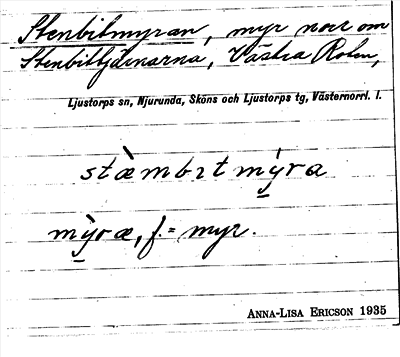 Stenbitmyran, myr norr om
Stenbittjärnarna, Västra Roten,
Ljustorps sn, Njurunda, Sköns och Ljustorps tg, Västernorrl. l.
stæ̀mbɪt mỳra
mỳræ, f. = myr.
ANNA-LISA ERICSON 1935